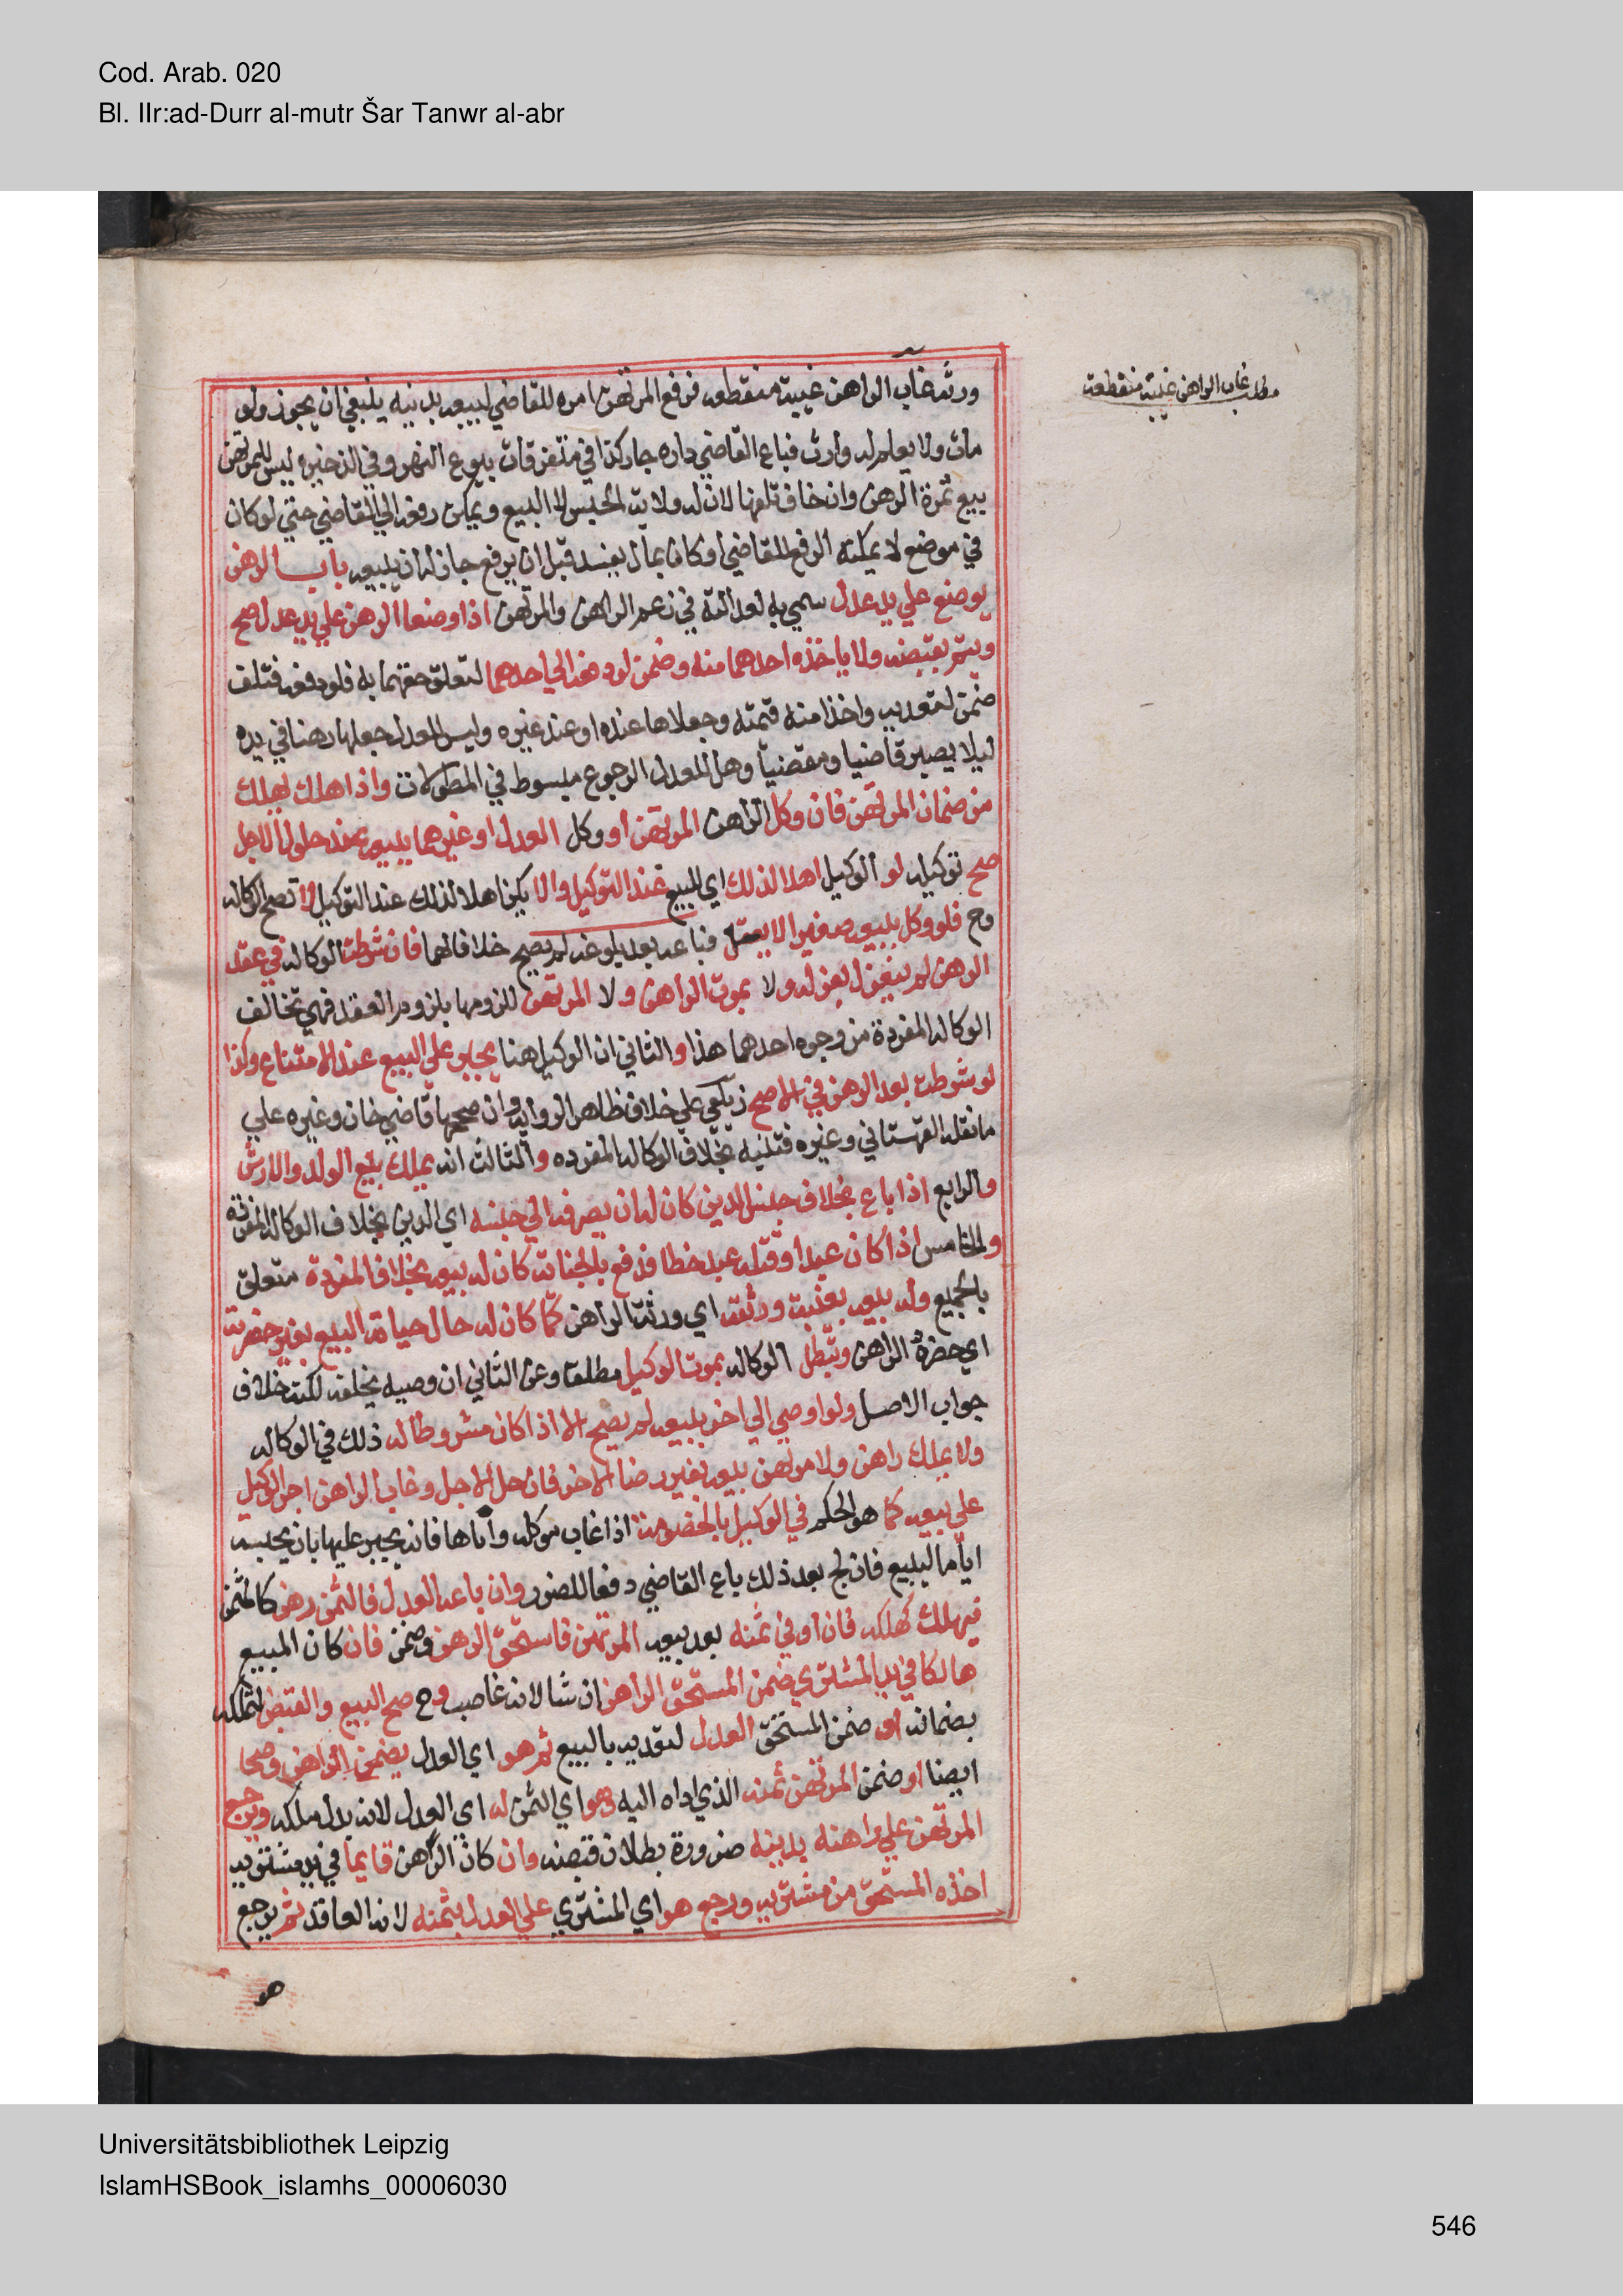 Cod. Arab. 020
Bl. IIr:ad-Durr al-mutr Šar Tanwr al-abr
مطلب غاب الراهن غيبة منقطعة
ورثه غاب الراهن غيبة منقطعه فرفع المرتهن امره للقاضي ليبيعه بدينه ينبغي ان يجوز ولو
مات ولا يعلم له وارث فباع القاضي داره جاز كذا في متفرقات بيوع النهر وفي الذخيره ليس للمرتهن
بيع ثمرة الرهن وان خاف تلفها لان له ولاية الحبس لا البيع ويمكن رفعه الي القاضي حتي لو كان
في موضع لا يمكنه الرفع للقاضي او كان بحال يفسد قبل ان يرفع جاز له ان يبيعه باب الرهن
يوضع علي يد عدل سمي به لعدالته في زعم الراهن والمرتهن اذا وضعا الرهن علي يد عدل صح
ويتم بقبضه ولا ياخذه احدهما منه وضمن لو دفعه الي احدهما لتعلق حقهما به فلو دفعه فتلف
ضمن لتعديه واخذا منه قيمته وجعلاها عنده او عند غيره وليس للعدل جعلها رهنا في يده
ليلا يصير قاضيا ومقضيا وهل للعدل الرجوع مبسوط في المطولات واذا هلك يهلك
من ضمان المرتهن فان وكل الراهن المرتهن او وكل العدل او غيرهما ببيعه عند حلول الاجل
صح توكيله لو الوكيل اهلا لذلك اي للبيع عند التوكيل والا يكن اهلا لذلك عند التوكيل لا تصح الوكاله
وح فلو وكل ببيعه صغيرا لا يعقل فباعه بعد بلوغه لم يصح خلافا لهما فان شرطت الوكاله في عقد
الرهن لم ينعزل بعزله ولا بموت الراهن ولا المرتهن للزومها بلزوم العقد فهي تخالف
الوكاله المفردة من وجوه احدهما هذا والثاني ان الوكيل هنا يجبر علي البيع عند الامتناع وكذا
لو شرطت بعد الرهن في الاصح زيلعي علي خلاف ظاهر الروايه وان صححها قاضي خان وغيره علي
ما نقله القهستاني وغيره فتنبه بخلاف الوكاله المفرده والثالث انه يملك بيع الولد والارش
والرابع اذا باع بخلاف جنس الدين كان له ان يصرفه الي جنسه اي الدين بخلاف الوكاله المفردة
والخامس اذا كان عبدا وقتله عبد خطا فدفع بالجناية كان له بيعه بخلاف المفردة متعلق
بالجميع وله بيعه بغيبة ورثته اي ورثة الراهن كما كان له حال حياته البيع بغير حضرته
اي حضرة الراهن وتبطل الوكاله بموت الوكيل مطلقا وعن الثاني ان وصيه يخلفه لكنه خلاف
جواب الاصل ولو اوصي الي اخر ببيعه لم يصح الا اذا كان مشروطا له ذلك في الوكاله
ولا يملك راهن ولا مرتهن بيعه بغير رضا الاخر فان حل الاجل وغاب الراهن اجبر الوكيل
علي بيعه كما هو الحكم في الوكيل بالخصومة اذا غاب موكله واباها فانه يجبر عليها بان يحبسه
اياما ليبيع فان لج بعد ذلك باع القاضي دفعا للضرر وان باعه العدل فالثمن رهن كالمثمن
فيهلك كهلكه فان اوفي ثمنه بعد بيعه المرتهن فاستحق الرهن وضمن فان كان المبيع
هالكا في يد المشتري ضمن المستحق الراهن ان شا لانه غاصب وح صح البيع والقبض لتملكه
بضمانه او ضمن المستحق العدل لتعديه بالبيع ثم هو اي العدل يضمن الراهن وصحا
ايضا او ضمن المرتهن ثمنه الذي اداه اليه وهو اي الثمن له اي العدل لانه بدل ملكه ويرجع
المرتهن علي راهنه بدينه ضرورة بطلان قبضه وان كان الراهن قايما في يد مشتريه
اخذه المستحق من مشتريه ورجع هو اي المشتري علي العدل بثمنه لانه العاقد ثم يرجع
هو
Universitätsbibliothek Leipzig
IslamHSBook_islamhs_00006030
546